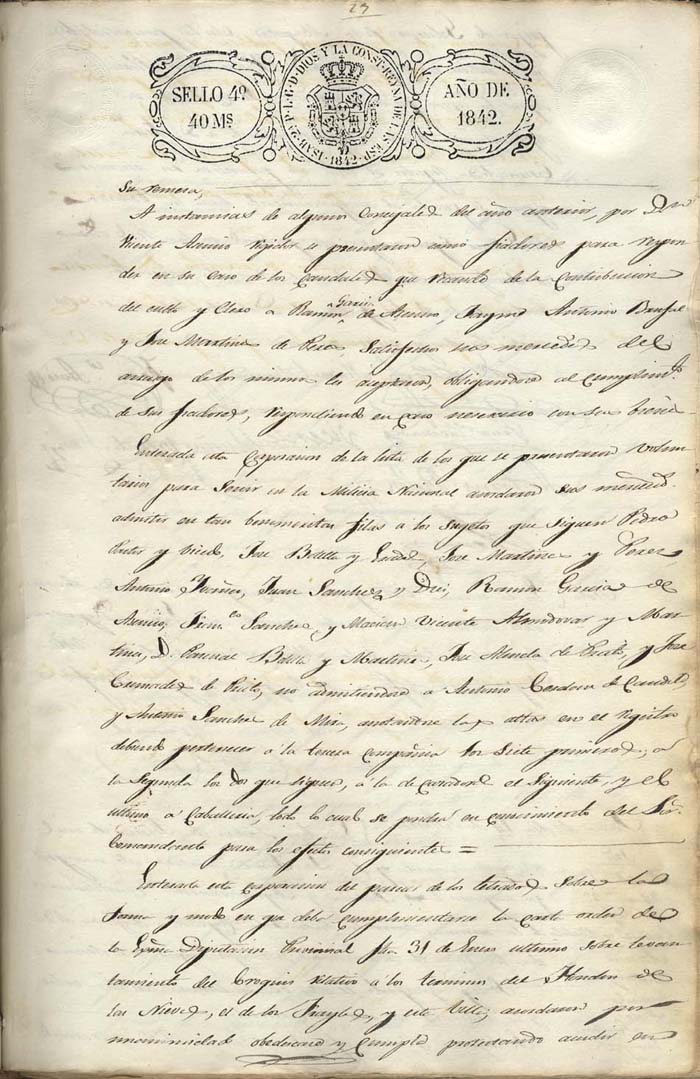 23
SELLO 4º
40 Ms.
ISAB. 2ª P. L. G. D. DIOS Y LA CONST. REYNA DE LAS ESP.
1842
AÑO DE
1842.
Su remesa,
A instancias de algunos Concejales del año anterior, por Dn
Vicente Regidor se presentaron como fiadores para respon
der en su caso de los caudales que recaudó de la Contribucion
del culto y Clero a Ramon Garcia de Asencio, Jayme Antonio
y Jose Martinez de Perez, Satisfechos sus mercedes del
arraigo de los mismos los aceptaron, obligandose al cumplimto.
de Sus fiadores, respondiendo en caso nesesario con sus bienes
Enterada esta Corporacion de la lista de los que se presentaron Volun
tarios para Servir en la Milicia Nacional acordaron Sus mercedes
admitir en tan beneméritas filas a los Sugetos que Siguen Pedro
Jose Botella y Jose Martinez y Perez,
Antonio Juan Sanchez y Ramon Garcia de
Franco. Sanchez y Vicente Almodovar y Mar
tinez, D. Pascual Botella y Martinez, Jose de Prats, y Jose
de no admitiendose a Antonio Cordova de
y Antonio Sanchez de Mira, anotandose las altas en el registro
debiendo pertenecer á la tercera Compañia los Siete primeros, á
la Segunda los dos que siguen, á la de Cazadores el Siguiente, y el
ultimo á Caballeria, todo lo cual se pondra en conocimiento del Sor.
Comandante para los efectos consiguientes =
Enterada esta corporacion del parecer de los letrados Sobre la
forma y modo en qe debe cumplimentarse la carta orden de
la Exma. Diputacion Provincial fha. 31 de Enero ultimo sobre levan
tamiento del Croquis relativo á los terminos del Hondon de
las Nieves, el de los Frayles, y esta Villa; acordaron por
unanimidad obedecerlo y Cumplir protestando acudir en